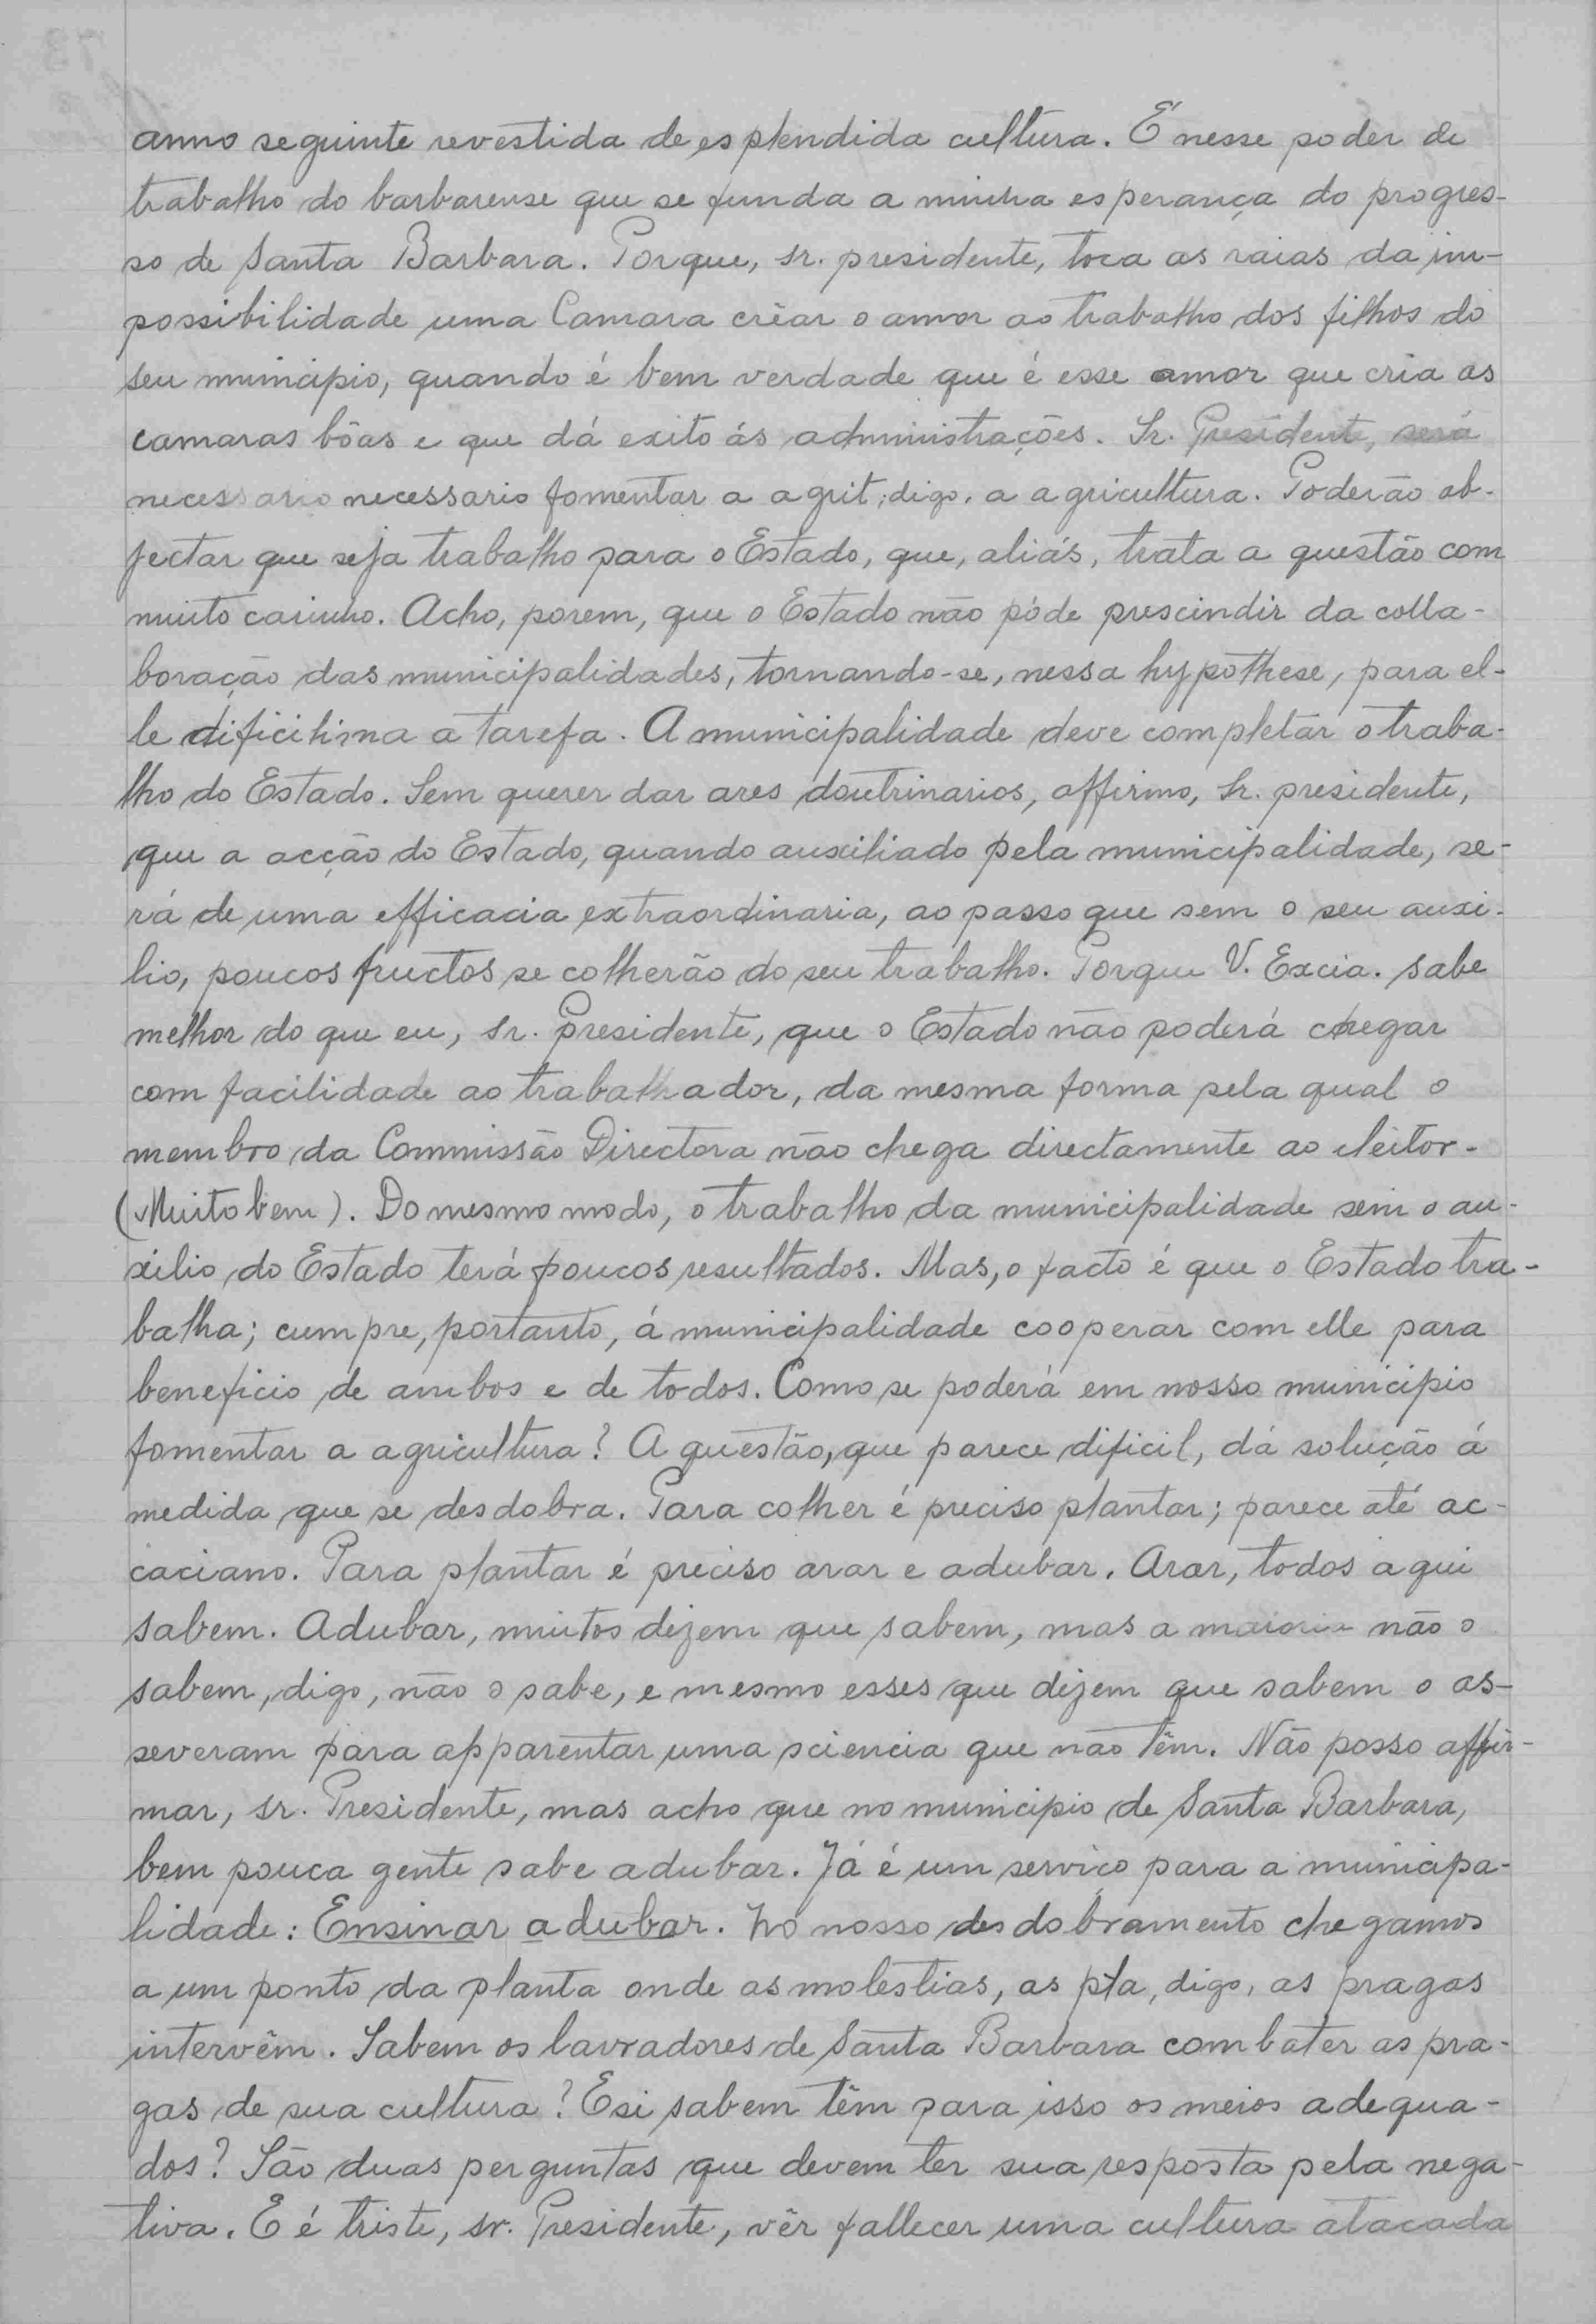 anno seguinte revestida de esplendida cultura. É nesse poder de
trabalho do barbarense que se funda a minha esperança do progres-
so de Santa Barbara. Porque, sr. presidente, toca as raias da im-
possibilidade uma Camara crêar o amor ao trabalho dos filhos do
seu municipio, quando é bem verdade que é esse amor que cria as
camaras bôas e que dá exito ás administrações. Sr. Presidente, será
necessario necessario fomentar a agrit, digo, a agricultura. Poderão ob-
jectar que seja trabalho para o Estado, que, aliás, trata a questão com
muito carinho. Acho, porem, que o Estado não póde prescindir da colla-
boração das municipalidades, tornando-se, nessa hypothese, para el-
le dificilima a tarefa. A municipalidade deve completar o traba-
lho do Estado. Sem querer dar ares doutrinarios, affirmo, Sr. presidente,
que a acção do Estado, quando auxiliado pela municipalidade, se-
rá de uma efficacia extraordinaria, ao passo que sem o seu auxi-
lio, poucos fructos se colherão do seu trabalho. Porque V. Excia. sabe
melhor do que eu, sr. Presidente, que o Estado não poderá chegar
com facilidade ao trabalhador, da mesma forma pela qual o
membro da Commissão Directora não chega directamente ao eleitor-
(Muito bem). Do mesmo modo, o trabalho da municipalidade sem o au-
xilio do Estado terá poucos resultados. Mas, o facto é que o Estado tra-
balha; cumpre, portanto, á municipalidade cooperar com elle para
beneficio de ambos e de todos. Como se poderá em nosso municipio
fomentar a agricultura? A questão, que parece dificil, dá solução á
medida que se desdobra. Para colher é preciso plantar; parece até ac-
caciano. Para plantar é preciso arar e adubar. Arar, todos aqui
sabem. Adubar, muitos dizem que sabem, mas a maioria não o
sabem, digo, não o sabe, e mesmo esses que dizem que sabem o as-
severam para apparentar uma sciencia que não têm. Não posso affir-
mar, sr. Presidente, mas acho que no municipio de Santa Barbara,
bem pouca gente sabe adubar. Já é um serviço para a municipa-
lidade: Ensinar adubar. No nosso desdobramento chegamos
a um ponto da planta onde as molestias, as pla, digo, as pragas
intervêm. Sabem os lavradores de Santa Barbara combater as pra-
gas de sua cultura? E si sabem têm para isso os meios adequa-
dos? São duas perguntas que devem ter sua resposta pela nega-
tiva. E é triste, sr. Presidente, vêr fallecer uma cultura atacada